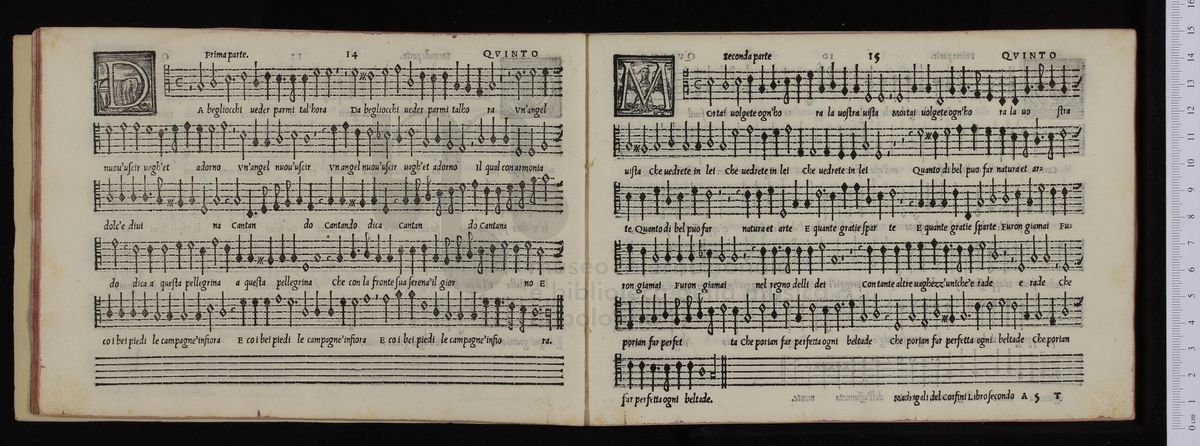 Prima parte. 14 QVINTO
DA begliocchi ueder parmi tal'hora Da begliocchi ueder parmi talho ra Vn'angel
nuou'uscir uagh'et adorno Vn'angel nuou'uscir Vn angel nuou'uscir uagh'et adorno Il qual con armonia
dolc'e diui na Cantan do Cantando dica Cantan do Cantan
do dica a questa pellegrina a questa pellegrina Che con la fronte sua serena'il gior no E
co i bei piedi le campagne'infiora E co i bei piedi le campagne'infiora E co i bei piedi le campagne'infio ra.
Seconda parte 15 QVINTO
MOrtai uolgete ogn'ho ra la uostra uista Mortai uolgete ogn'ho ra la uo stra
uista Che uedrete in lei Che uedrete in lei Che uedrete in lei Quanto di bel puo far natura et ar-
te. Quanto di bel puo far natura et arte E quante gratie spar te E quante gratie sparte Furon giamai Fu-
ron giamai Furon giamai nel regno delli dei Con tante altre uaghezz'uniche'e rade e rade Che
porian far perfet ta Che porian far perfetta ogni beltade Che porian far perfetta ogni beltade Che porian
far perfetta ogni beltade. Madrigali del Corfini Libro secondo A 5 T